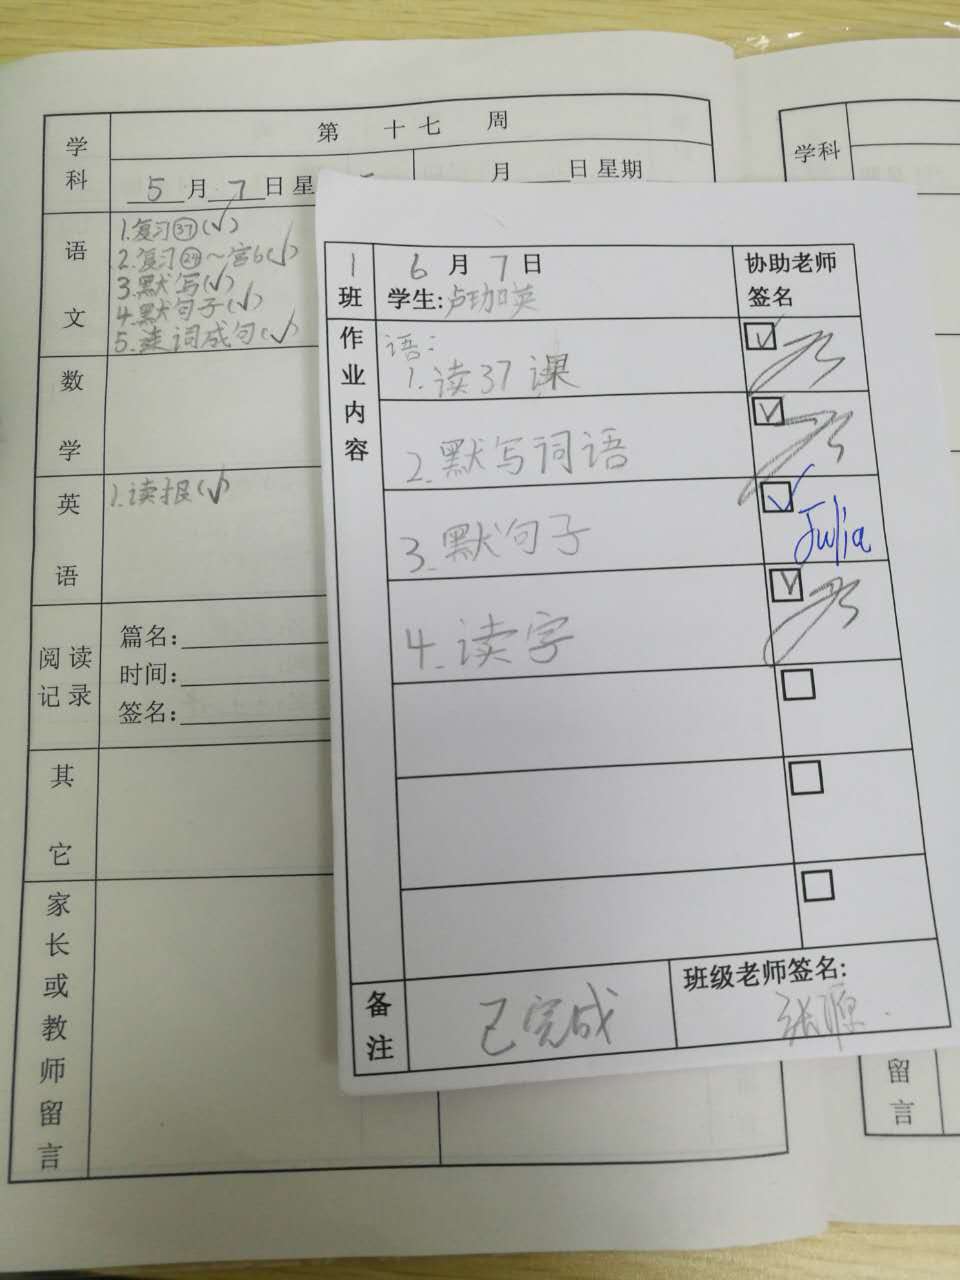 学科
第 十七 周
5月7日星
月 日星期
语文
1.复习㊲(√)
2.复习㉙～宫6(√)
3.默写(√)
4.默句子(√)
5.连词成句(√)
数学
英语
1.读报(√)
阅读记录
篇名:
时间:
签名:
其它
家长或教师留言
1班
6月7日
学生:卢珈英
协助老师
签名
作业内容
语:
1.读37课
2.默写词语
3.默句子
Julia
4.读字
备注
已完成
班级老师签名:
学科
留言